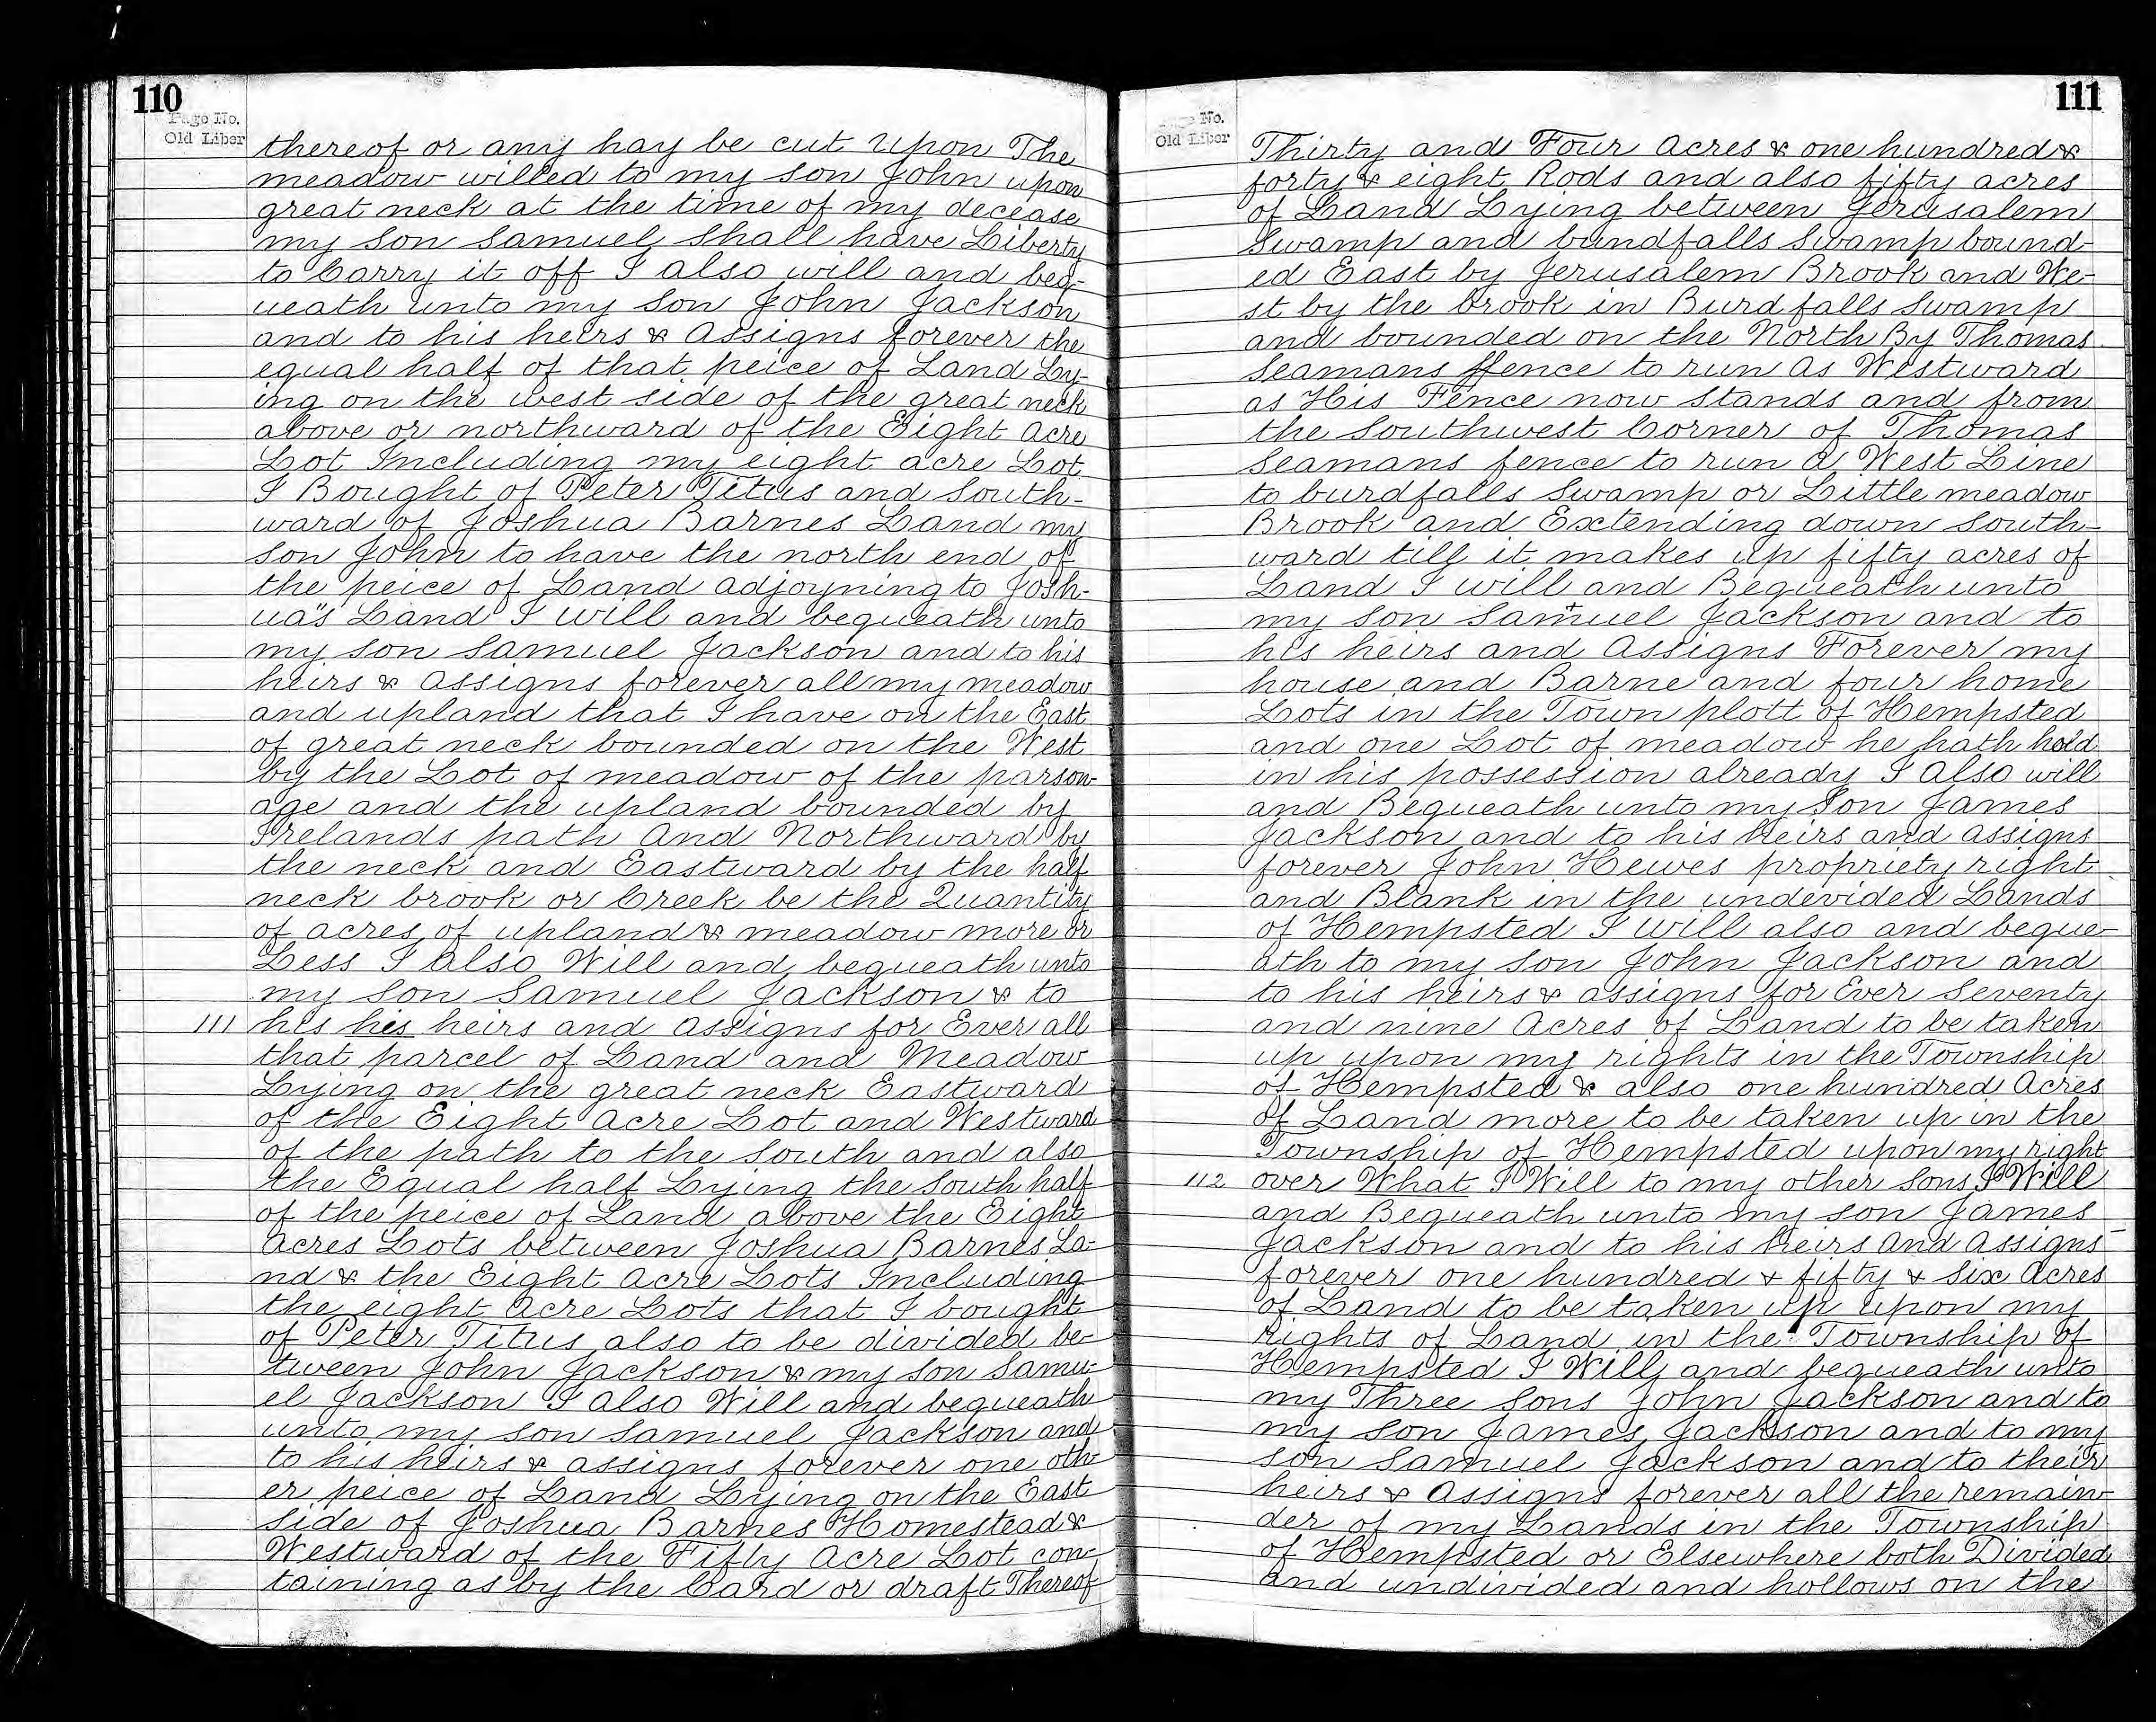 110
Page No.
Old Liber
thereof or any hay be cut upon The
meadow willed to my son John upon
great neck at the time of my decease
my son Samuel shall have Liberty
to Carry it off I also will and beq-
ueath unto my son John Jackson
and to his heirs & Assigns forever the
equal half of that peice of Land Ly-
ing on the west side of the great neck
above or northward of the Eight Acre
Lot Including my eight acre Lot
I Bought of Peter Titus and South-
ward of Joshua Barnes Land my
son John to have the north end of
the peice of Land adjoyning to Josh-
ua"s Land I will and bequeath unto
my son Samuel Jackson and to his
heirs & Assigns forever all my meadow
and upland that I have on the East
of great neck bounded on the West
by the Lot of meadow of the parson-
age and the upland bounded by
Irelands path And Northward by
the neck and Eastward by the half
neck brook or Creek be the Quantity
of acres of upland & meadow more or
Less I also Will and bequeath unto
my son Samuel Jackson & to
111 his his heirs and assigns for Ever all
that parcel of Land and Meadow
Lying on the great neck Eastward
of the Eight Acre Lot and Westward
of the path to the South and also
the Equal half Lying the South half
of the peice of Land above the Eight
Acres Lots between Joshua Barnes La-
nd & the Eight Acre Lots Including
the eight Acre Lots that I bought
of Peter Titus also to be divided be-
tween John Jackson & my son Samu-
el Jackson I also Will and bequeath
unto my son Samuel Jackson and
to his heirs & assigns forever one oth-
er peice of Land Lying on the East
side of Joshua Barnes Homestead &
Westward of the Fifly Acre Lot con-
taining as by the Card or draft Thereof
111
Page No.
Old Liber
Thirty and Four Acres & one hundred &
forty & eight Rods and also fifty acres
of Land Lying between Jerusalem
Swamp and bundfalls Swamp bound-
ed East by Jerusalem Brook and We-
st by the brook in Burdfalls Swamp
and bounded on the North By Thomas
Seamans ffence to run As Westward
as His Fence now stands and from
the Southwest Corner of Thomas
Seamans fence to run a West Line
to burdfalls Swamp or Little meadow
Brook and Extending down South-
ward till it makes up fifty acres of
Land I will and Bequeath unto
my son Samuel Jackson and to
his heirs and Assigns Forever my
house and Barne and four home
Lots in the Town plott of Hempsted
and one Lot of meadow he hath hold
in his possession already I also will
and Bequeath unto my Son James
Jackson and to his heirs and assigns
forever John Hewes propriety right
and Blank in the undevided Lands
of Hempsted I will also and beque-
ath to my son John Jackson and
to his heirs & assigns for Ever Seventy
and nine Acres of Land to be taken
up upon my rights in the Township
of Hempsted & also one hundred Acres
of Land more to be taken up in the
Township of Hempsted upon my right
112 over What I Will to my other Sons I Will
and Bequeath unto my son James
Jackson and to his heirs And Assigns
forever one hundred & fifty & Six Acres
of Land to be taken up upon my
Rights of Land in the Township of
Hempsted I Will and bequeath unto
my Three Sons John Jackson and to
my son James Jackson and to my
son Samuel Jackson and to their
heirs & Assigns forever all the remain-
der of my Lands in the Township
of Hempsted or Elsewhere both Divided
and undivided and hollows on the